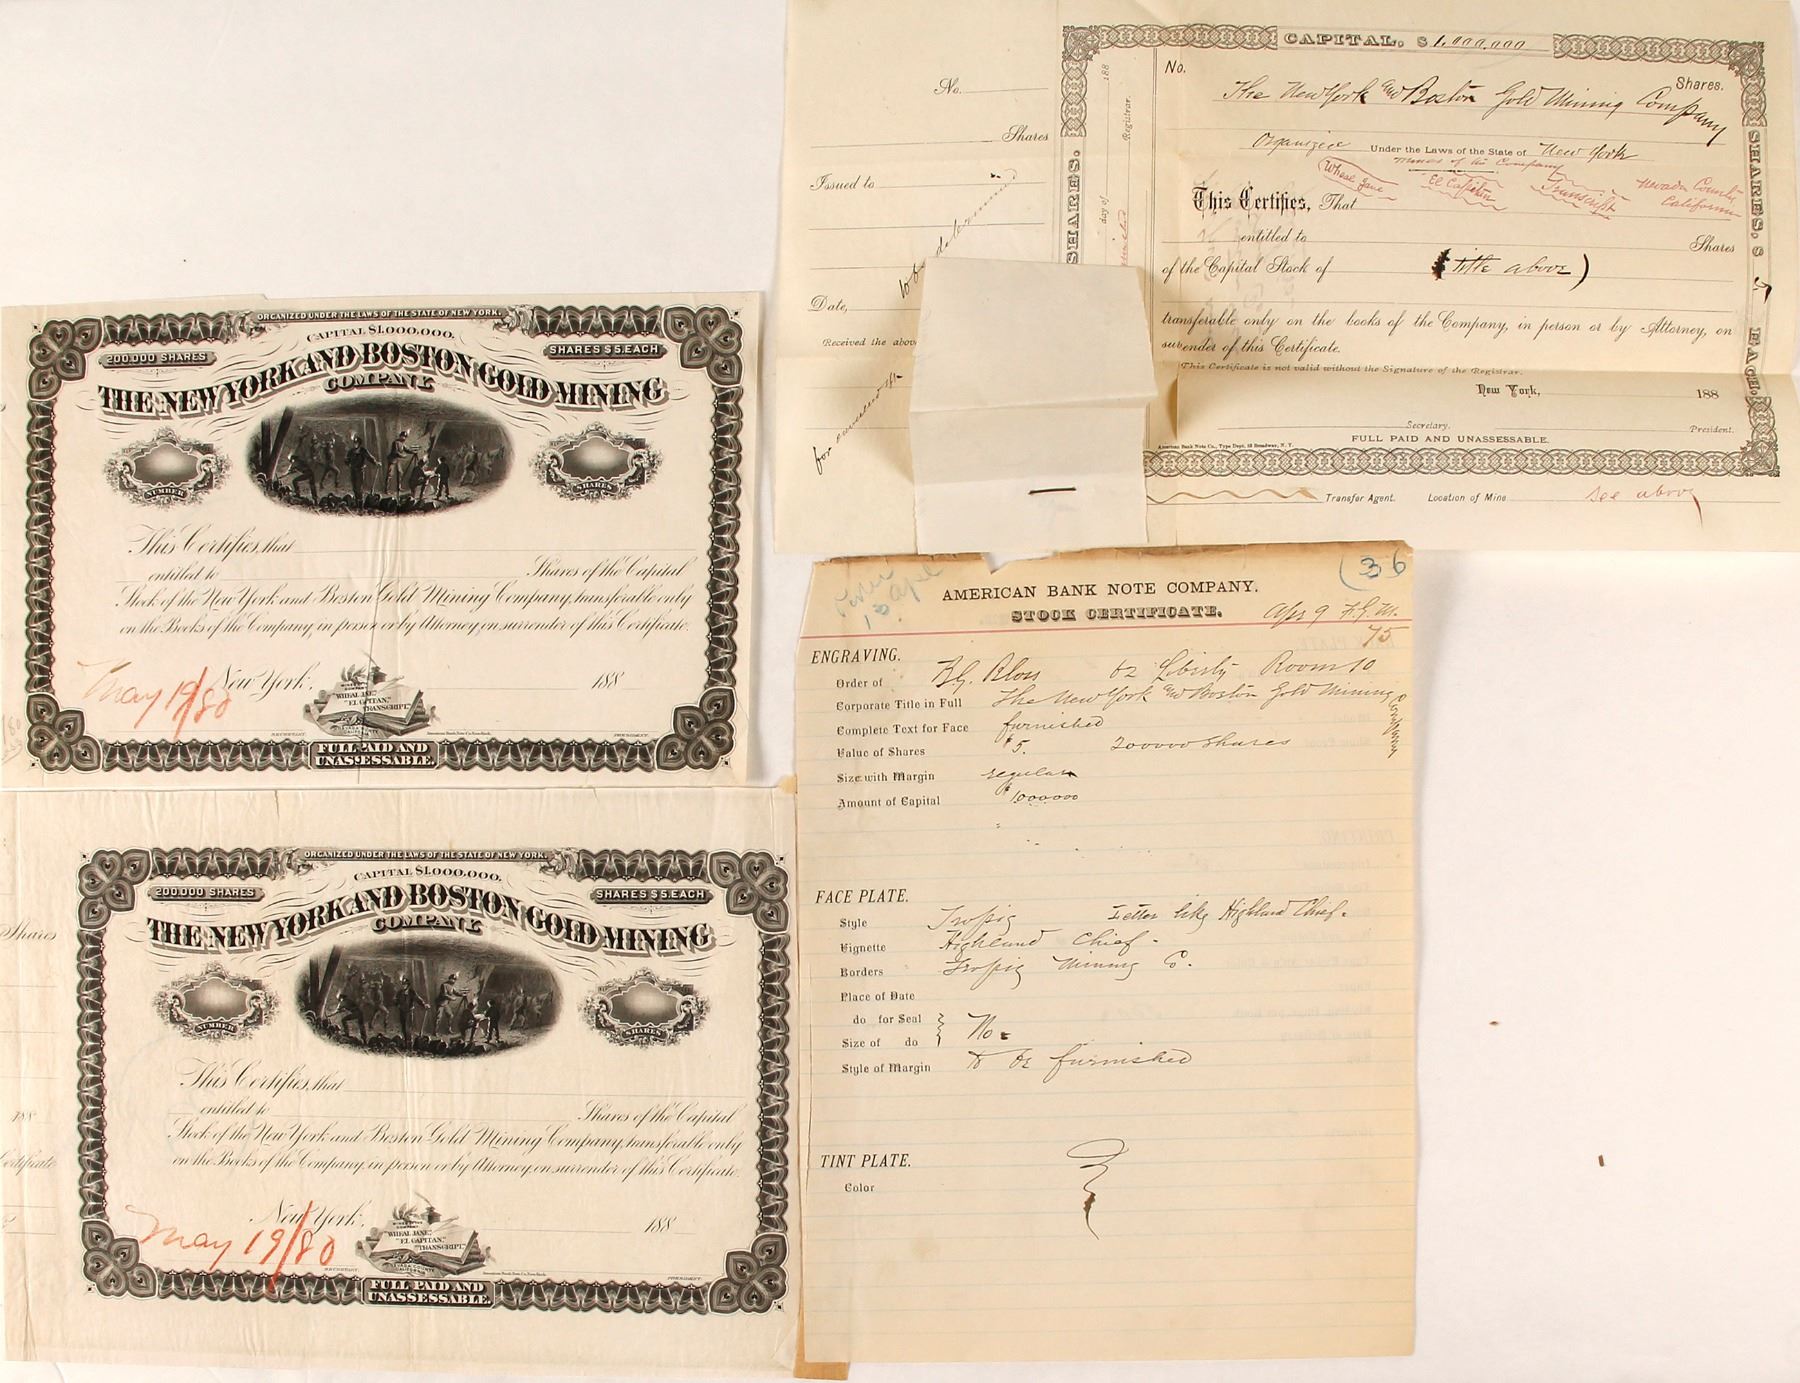 ORGANIZED UNDER THE LAWS OF THE STATE OF NEW YORK.
CAPITAL $1.000.000.
200.000 SHARES
SHARES $5. EACH
THE NEW YORK AND BOSTON GOLD MINING
COMPANY
NUMBER
SHARES
This Certifies, that
entitled to
Shares of the Capital
Stock of the New York and Boston Gold Mining Company, transferable only
on the Books of the Company, in person or by Attorney, on surrender of this Certificate.
May 19/80
New York,
188
MINES OF THE
COMPANY
WHEAL JANE,"
"EL CAPITAN,"
TRANSCRIPT."
NEVADA COUNTY
CALIFORNIA
SECRETARY.
American Bank Note Co. New York.
PRESIDENT.
FULL PAID AND
UNASSESSABLE.
Shares
188
Certificate
ORGANIZED UNDER THE LAWS OF THE STATE OF NEW YORK.
CAPITAL $1.000.000.
200.000 SHARES
SHARES $5. EACH
THE NEW YORK AND BOSTON GOLD MINING
COMPANY
NUMBER
SHARES
This Certifies, that
entitled to
Shares of the Capital
Stock of the New York and Boston Gold Mining Company, transferable only
on the Books of the Company, in person or by Attorney, on surrender of this Certificate.
May 19/80
New York,
188
MINES OF THE
COMPANY
WHEAL JANE,"
"EL CAPITAN,"
"TRANSCRIPT."
NEVADA COUNTY
CALIFORNIA
SECRETARY.
American Bank Note Co. New York.
PRESIDENT.
FULL PAID AND
UNASSESSABLE.
No.
Shares
Issued to
to be determined
Date,
Received the abov
for
SHARES.
188
day of
Registrar.
CAPITAL, $ 1,000,000
No.
Shares.
The New York and Boston Gold Mining Company
Organized Under the Laws of the State of New York
Mines of the Company
Wheal Jane El Capitan Transcript Nevada County
California
This Certifies, That
entitled to
Shares
of the Capital Stock of (title above)
transferable only on the books of the Company, in person or by Attorney, on
surrender of this Certificate.
This Certificate is not valid without the Signature of the Registrar.
New York, 188
Secretary.
President.
FULL PAID AND UNASSESSABLE.
American Bank Note Co., Type Dept. 52 Broadway, N. Y.
SHARES, $ 5 EACH.
Transfer Agent. Location of Mine see above
(36
13 Apl
AMERICAN BANK NOTE COMPANY.
STOCK CERTIFICATE.
Apr 9 F.G.M.
75
ENGRAVING.
Order of B.G. Bloss 52 Liberty Room 10
Corporate Title in Full The New York and Boston Gold Mining Company
Complete Text for Face furnished
Value of Shares $5. 200000 shares
Size with Margin regular
Amount of Capital $1000000
FACE PLATE.
Style Letter like Highland Chief.
Vignette Highland Chief.
Borders Mining Co.
Place of Date
do for Seal
Size of do
No.
Style of Margin to be furnished
TINT PLATE.
Color